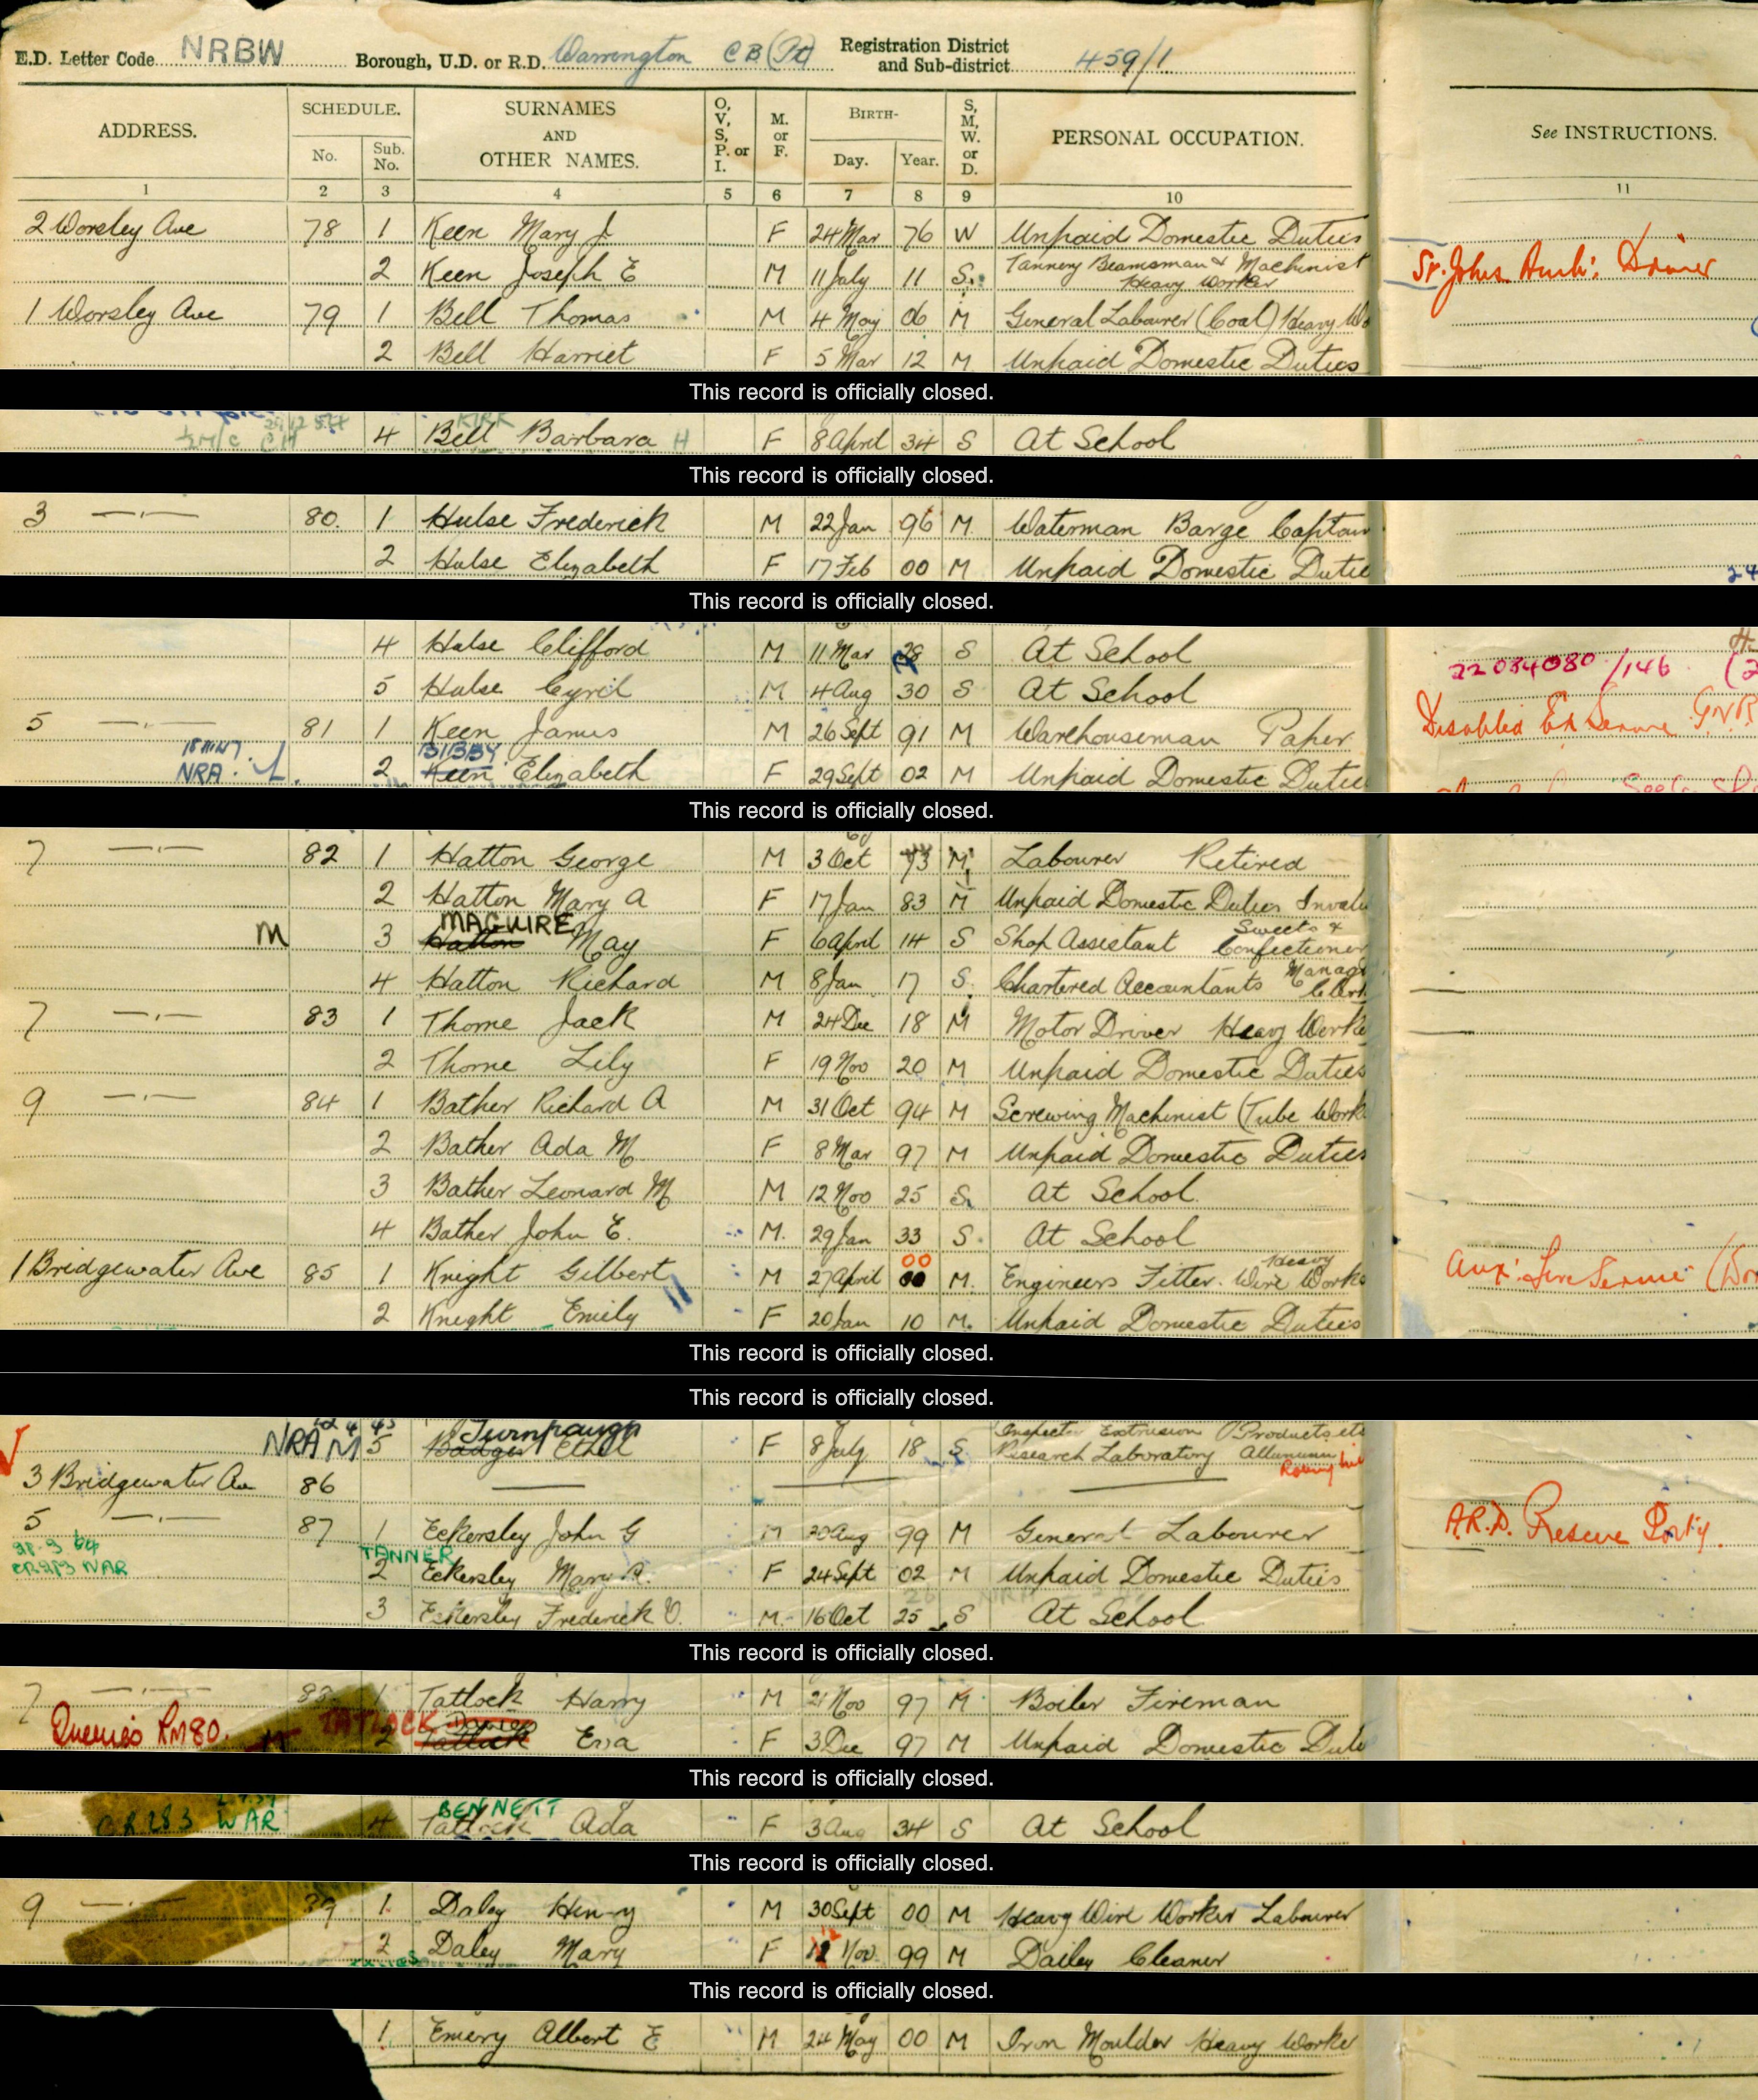 E.D. Letter Code NRBW Borough, U.D. or R.D. Warrington C B (Pt) Registration District and Sub-district 459/1
ADDRESS. SCHEDULE. No. Sub. No. SURNAMES AND OTHER NAMES. O, V, S, P. or I. M. or F. BIRTH- Day. Year. S, M, W. or D. PERSONAL OCCUPATION. See INSTRUCTIONS.
1 2 3 4 5 6 7 8 9 10 11
2 Worsley Ave 78 1 Keen Mary J F 24 Mar 76 W Unpaid Domestic Duties
2 Keen Joseph E M 11 July 11 S. Tannery Beamsman & Machinist Heavy Worker St. Johns Amb: Driver
1 Worsley Ave 79 1 Bell Thomas M 4 May 06 M General Labourer (Coal) Heavy Wo
2 Bell Harriet F 5 Mar 12 M Unpaid Domestic Duties
This record is officially closed.
KIRK
4 Bell Barbara H F 8 April 34 S At School
This record is officially closed.
3 —.— 80. 1 Hulse Frederick M 22 Jan 96 M. Waterman Barge Captain
2 Hulse Elizabeth F 17 Feb 00 M Unpaid Domestic Dutie 24
This record is officially closed.
4 Hulse Clifford M 11 Mar 28 S At School
22 034080/146 (2
5 Hulse Cyril M 4 Aug 30 S At School
5 —.— 81 1 Keen James M 26 Sept 91 M Warehouseman Paper Disabled Ex Service
BIBBY
NRA. 2 Keen Elizabeth F 29 Sept 02 M Unpaid Domestic Dutie
This record is officially closed.
7 —.— 82 1 Hatton George M 3 Oct 73 M Labourer Retired
2 Hatton Mary A F 17 Jan 83 M Unpaid Domestic Duties Invali
MAGUIRE
M 3 Hatton May F 6 April 14 S Shop Assistant Sweets & Confectioner
4 Hatton Richard M 8 Jan 17 S. Chartered Accountants Manag Clerk
7 —.— 83 1 Thorne Jack M 24 Dec 18 M Motor Driver Heavy Worke
2 Thorne Lily F 19 Nov 20 M Unpaid Domestic Duties
9 —.— 84 1 Bather Richard A M 31 Oct 94 M Screwing Machinist (Tube Work
2 Bather Ada M. F 8 Mar 97 M Unpaid Domestic Duties
3 Bather Leonard M M 12 Nov 25 S. At School.
4 Bather John E. M. 29 Jan 33 S. At School
00
1 Bridgewater Ave 85 1 Knight Gilbert M 27 April 00 M. Engineers Fitter. Wire Works Heavy Aux: Fire Service
2 Knight Emily F 20 Jan 10 M. Unpaid Domestic Duties
This record is officially closed.
This record is officially closed.
Turnpaugh
NRA M 5 Badger Ethel F 8 July 18 S Inspector Extrusion Products etc Research Laboratory Alluminium
3 Bridgewater Av 86
5 —.— 87 1 Eckersley John G M 20 Aug 99 M General Labourer A.R.P. Rescue Party.
TANNER
CR283 WAR 2 Eckersley Mary A. F 24 Sept 02 M Unpaid Domestic Duties
3 Eckersley Frederick V. M. 16 Oct 25 S At School
This record is officially closed.
7 —.— 88 1 Tatlock Harry M 21 Nov 97 M. Boiler Fireman
Queries RM80. TATLOCK Davies
2 Tatlock Eva F 3 Dec 97 M Unpaid Domestic Dutie
This record is officially closed.
BENNETT
CR283 WAR 4 Tatlock Ada F 3 Aug 34 S At School
This record is officially closed.
9 —.— 89 1. Daley Henry M 30 Sept 00 M Heavy Wire Worker Labourer
2 Daley Mary F 12 Nov. 99 M Dailey Cleaner
This record is officially closed.
1. Emery Albert E M 24 May 00 M Iron Moulder Heavy Worker